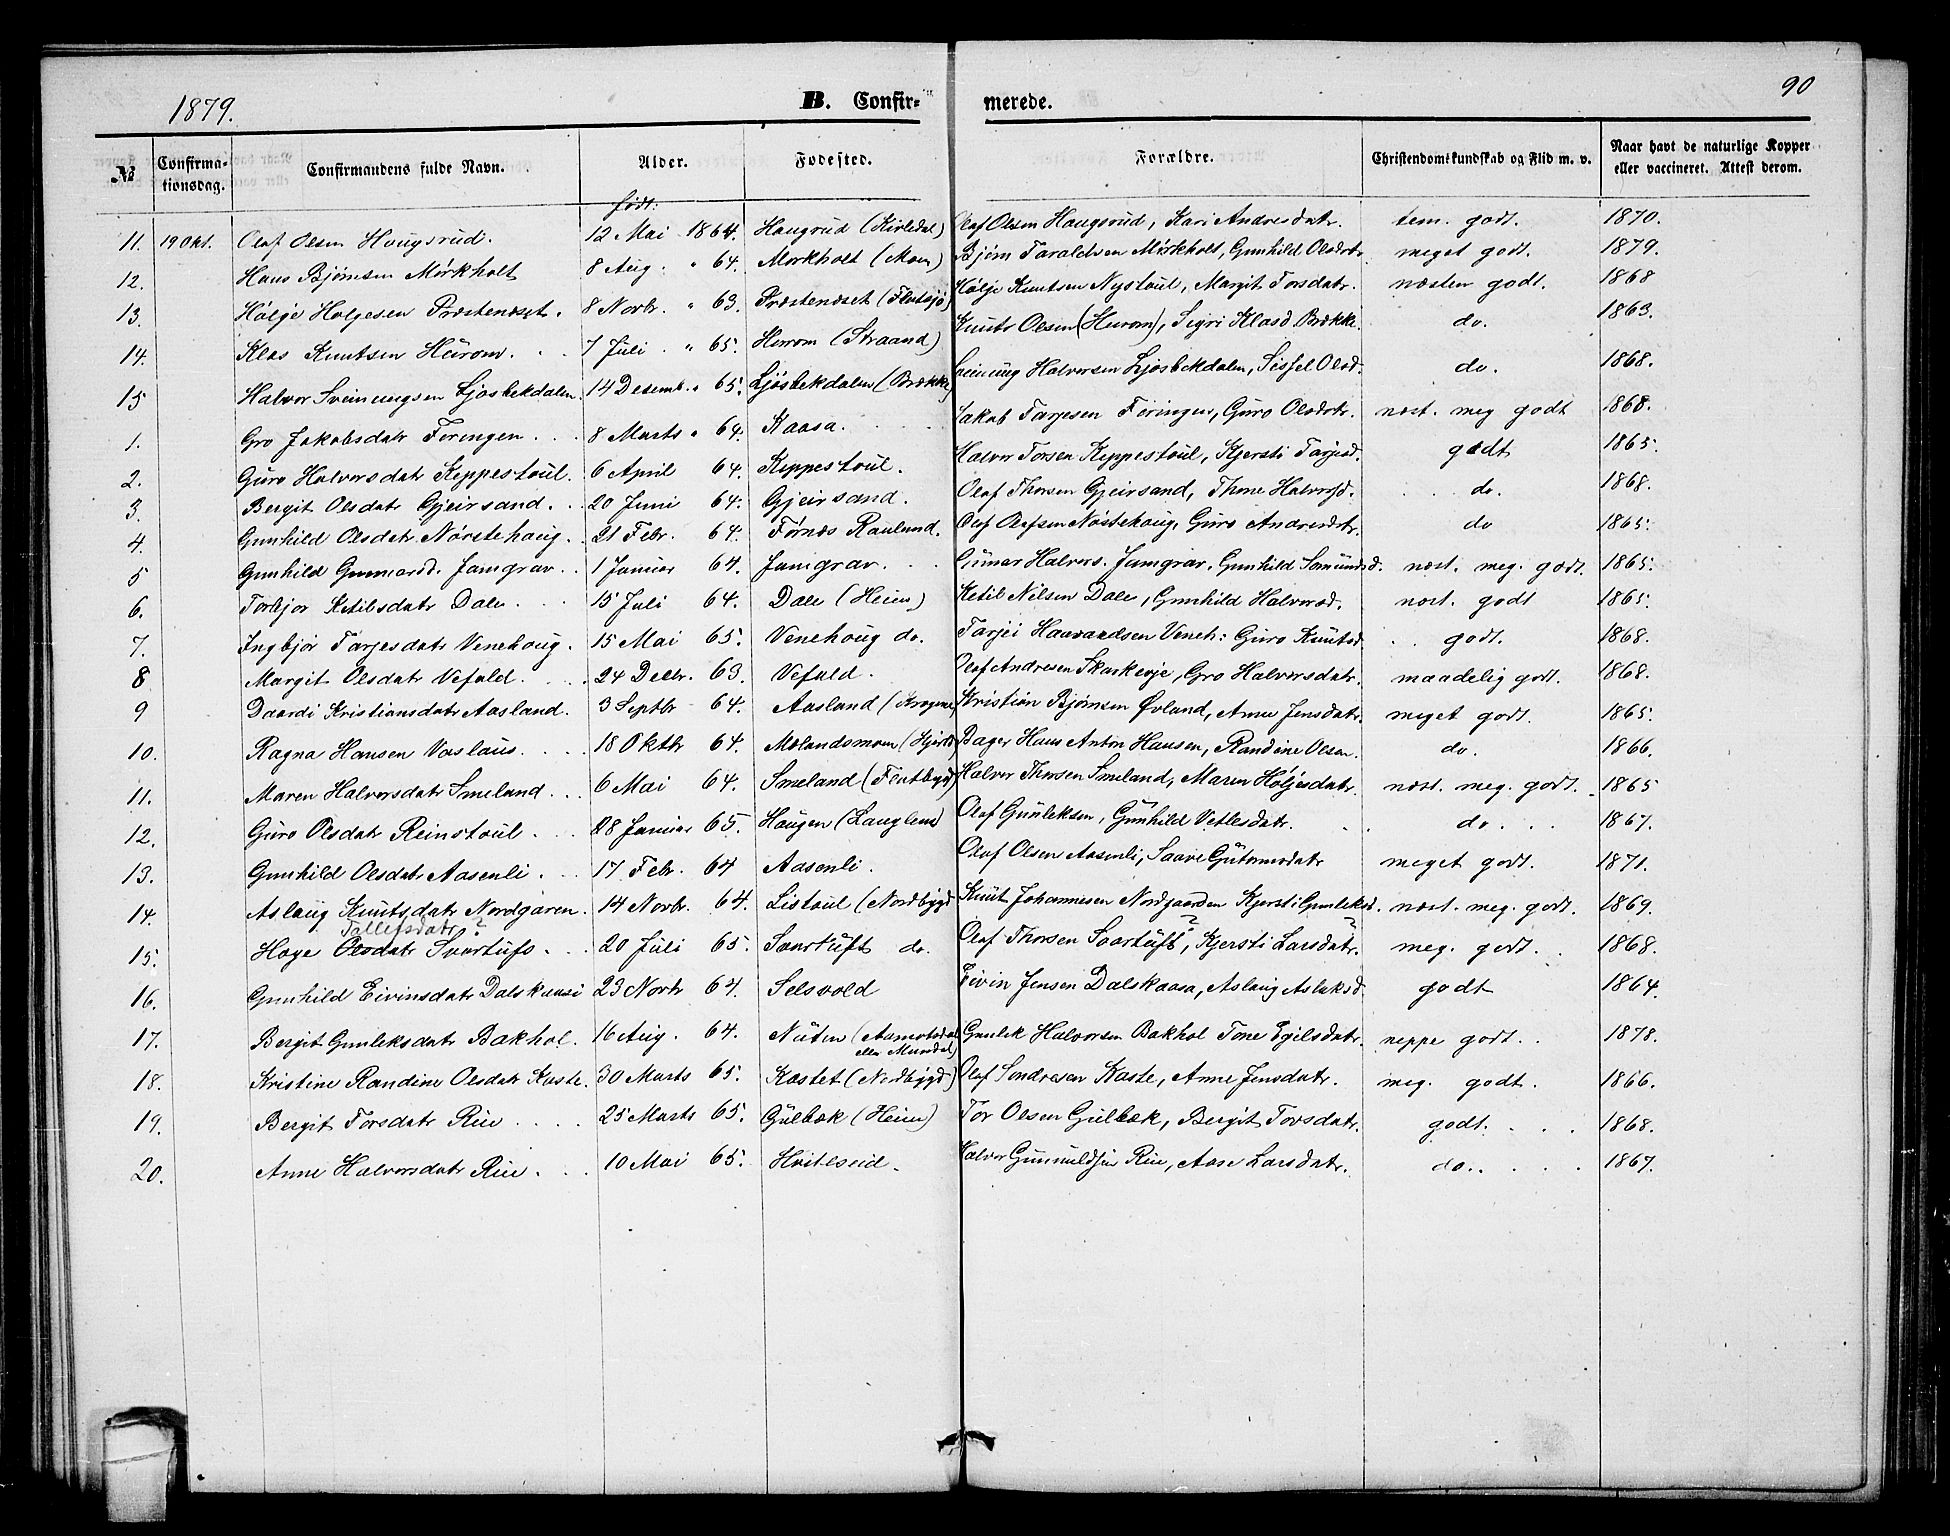 90
1879. B. Confir= merede.
№ Confirma-tionsdag. Confirmandens fulde Navn. Alder. Fødested. Forældre. Christendomskundskab og Flid m. v. Naar havt de naturlige Kopper eller vaccineret. Attest derom.
født:
11. 19 Okt. Olaf Olsen Haugsrud. 12 Mai 1864. Haugrud Olaf Olsen Haugsrud, Kari Andresdatr. tem. godt. 1870.
12. Hans Bjørnsen Mørkholt 8 Aug. " 64. Morkholt (Moen) Bjørn Taraldsen Mørkholt, Gunhild Olsdtr. meget godt. 1879.
13. Hølje Holjesen Præstenæset. 8 Novbr. " 63. Præstenæset Hølje Knutsen Nystoul, Margit Torsdatr. næsten godt. 1868
14. Klas Knutsen Hurom. 7 Juli " 65. Hurom (Straand) Knutr Olsen (Hurom), Sigri Klasd. Brække. do. 1863.
15 Halvor Sveinungsen Ljosbekdalen 14 Desemb. " 65. Ljösbekdalen (Brække) Sveinung Halvorsen Ljosbekdalen, Sissel Olsd. do. 1868.
1. Gro Jakobsdatr Føringen 8 Marts " 64. Kaasa. Jakob Tarjesen Føringen, Guro Olsdtr. næst. meg godt 1868.
2. Guro Halvorsdatr Kippestoul. 6 April 64. Kippestoul. Halvor Torsen Kippestoul, Kjersti Tarjesd. godt 1865.
3. Bergit Olsdatr Gjeirsand. 20 Juni 64. Gjeirsand. Olaf Thorsen Gjeirsand, Thone Halvorsd. do. 1868.
4. Gunhild Olsdatr Nørstehaug. 21 Febr. 64. Førnes Rauland. Olaf Olafsen Nøstehoug, Guro Andresdtr. do 1865.
5 Gunhild Gunnarsd. Jamgrav. 1 Januar 64. Jamgrav. Gunnar Halvors. Jamgrav. Gunhild Somundsd. næst. meg. godt. 1865.
6. Torbjor Ketilsdatr Dale. 15 Juli 64. Dale (Heien) Ketil Nilsen Dale, Gunhild Halvorsd. næst. godt 1865.
7. Ingbjør Tarjesdatr Venehoug. 15 Mai 65. Venehoug do. Tarjei Haavardsen Veneh: Guro Knutsd. godt. 1868.
8 Margit Olsdatr Vefald. 24 Decbr. 63. Vefald. Olaf Andresen Skarkeoje, Gro Halvorsdatr. maadelig godt. 1868.
9 Daardi Kristiansdatr Aasland. 3 Septbr 64. Aasland Kristian Bjørnsen Øvland, Anne Jensdatr. meget godt. 1865.
10. Ragna Hansen Vaslaus. 18 Oktbr 64. Mælandsmoen Bager Hans Anton Hansen, Randine Olsen. do. 1866.
11. Maren Halvorsdatr Smeland. 6 Mai 64. Smeland (Flatbygd) Halvor Thorsen Smeland, Maren Høljesdatr. næst. meg. godt. 1865
12. Guro Olsdatr Reinstoul. 28 Januar 65. Haugen Olaf Gunleksen, Gunhild Vetlesdatr. do. 1867.
13. Gunhild Olsdatr Aasenli. 17 Febr. 64 Aasenli. Olaf Olsen Aasenli, Saave Gutormsdatr meget godt. 1871.
14. Aslaug Knutsdatr Nordgaren. 14 Novbr. 64. Listoul (Nordbygd) Knut Johannesen Nordgaarden Kjersti Gunleksd. næst. meg. godt. 1869.
Tallefsdatr?
15. Hæge Olsdatr Svartufs. 20 Juli 65. Svartuft do. Olaf Thorsen Svartuft?, Kjersti Larsdatr.? meg. godt. 1868.
16. Gunhild Eivinsdatr Dalskaasi 23 Novbr 64. Selsvold Eivin Jensen Dalskaasa, Aslaug Aslaksd. godt 1864.
17. Bergit Gunleksdatr Bakhol. 16 Aug. 64. Nuten (Aamotsdal eller Mundal) Gunlek Halvorsen Bakhol Tone Egilsdatr. neppe godt. 1878.
18. Kristine Randine Olsdatr Kaste. 30 Marts 65. Kastet (Nordbygd) Olaf Sondresen Kaste, Anne Jensdatr. meg. godt. 1866.
19. Bergit Torsdatr Rui 25 Marts 65. Gulbæk (Heien) Tor Olsen Gulbæk, Bergit Torsdatr. godt. 1868.
20. Anne Halvorsdatr Rui. 10 Mai 65. Hviteseid. Halvor Gunnuldsen Rui, Aase Larsdatr. do. 1867.